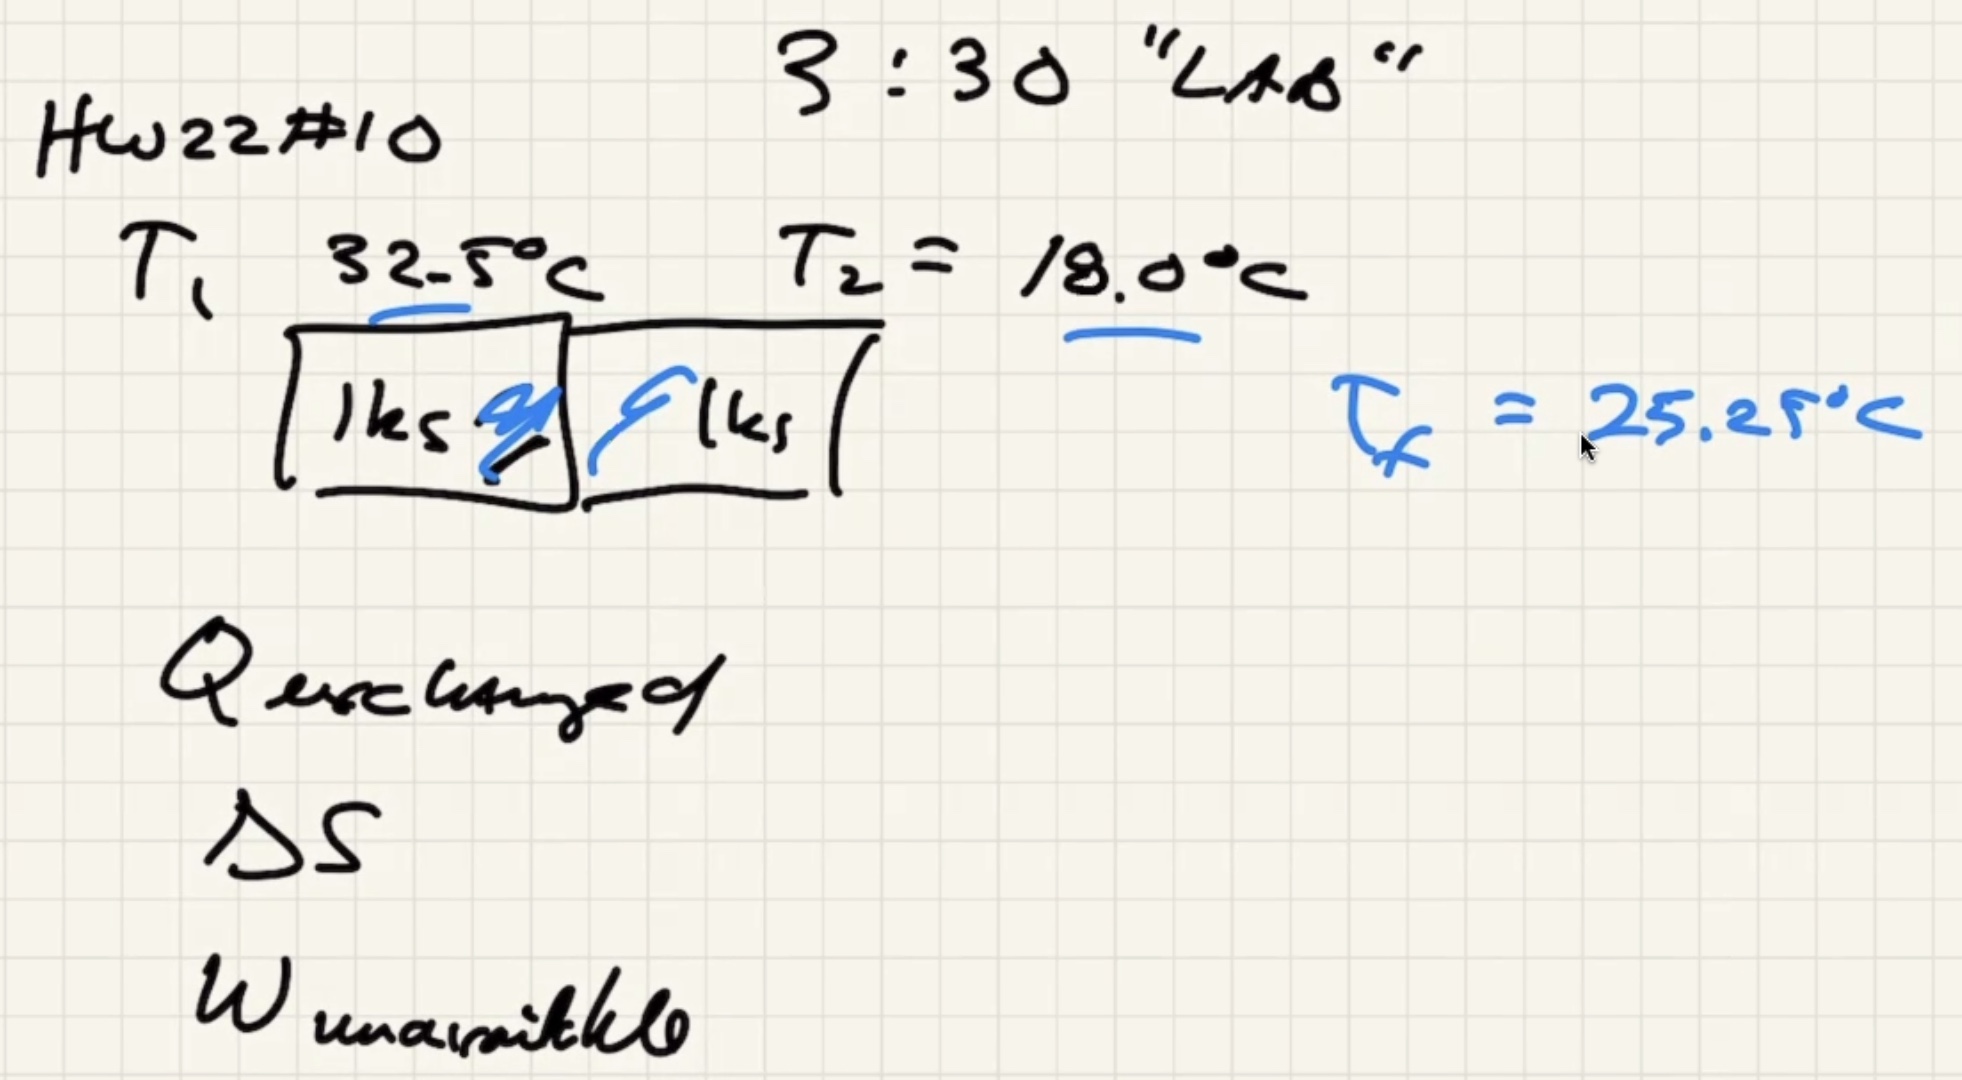 3:30 "LAB"
HW22#10
T₁ 32.5°C T₂ = 18.0°C
1kg 1kg
T_f = 25.25°C
Q exchanged
ΔS
W unavailable